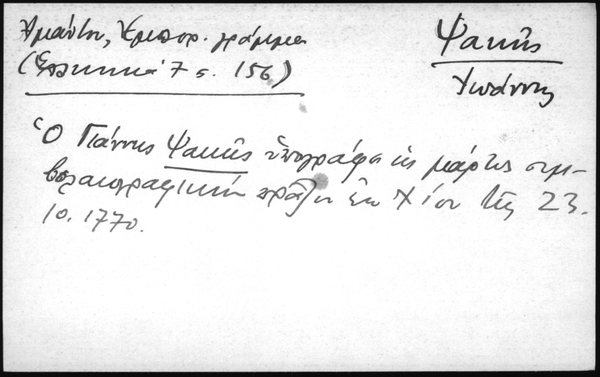 Ἀμάντου, Ἐμπορ. γράμματα
(Ἑλληνικά 7 σ. 156)
Ψακῆς
Ἰωάννης
Ὁ Γιάννης Ψακῆς ὑπογράφει ὡς μάρτυς συμ-
βολαιογραφικήν πρᾶξιν ἐν Χίῳ τῆς 23.
10. 1770.